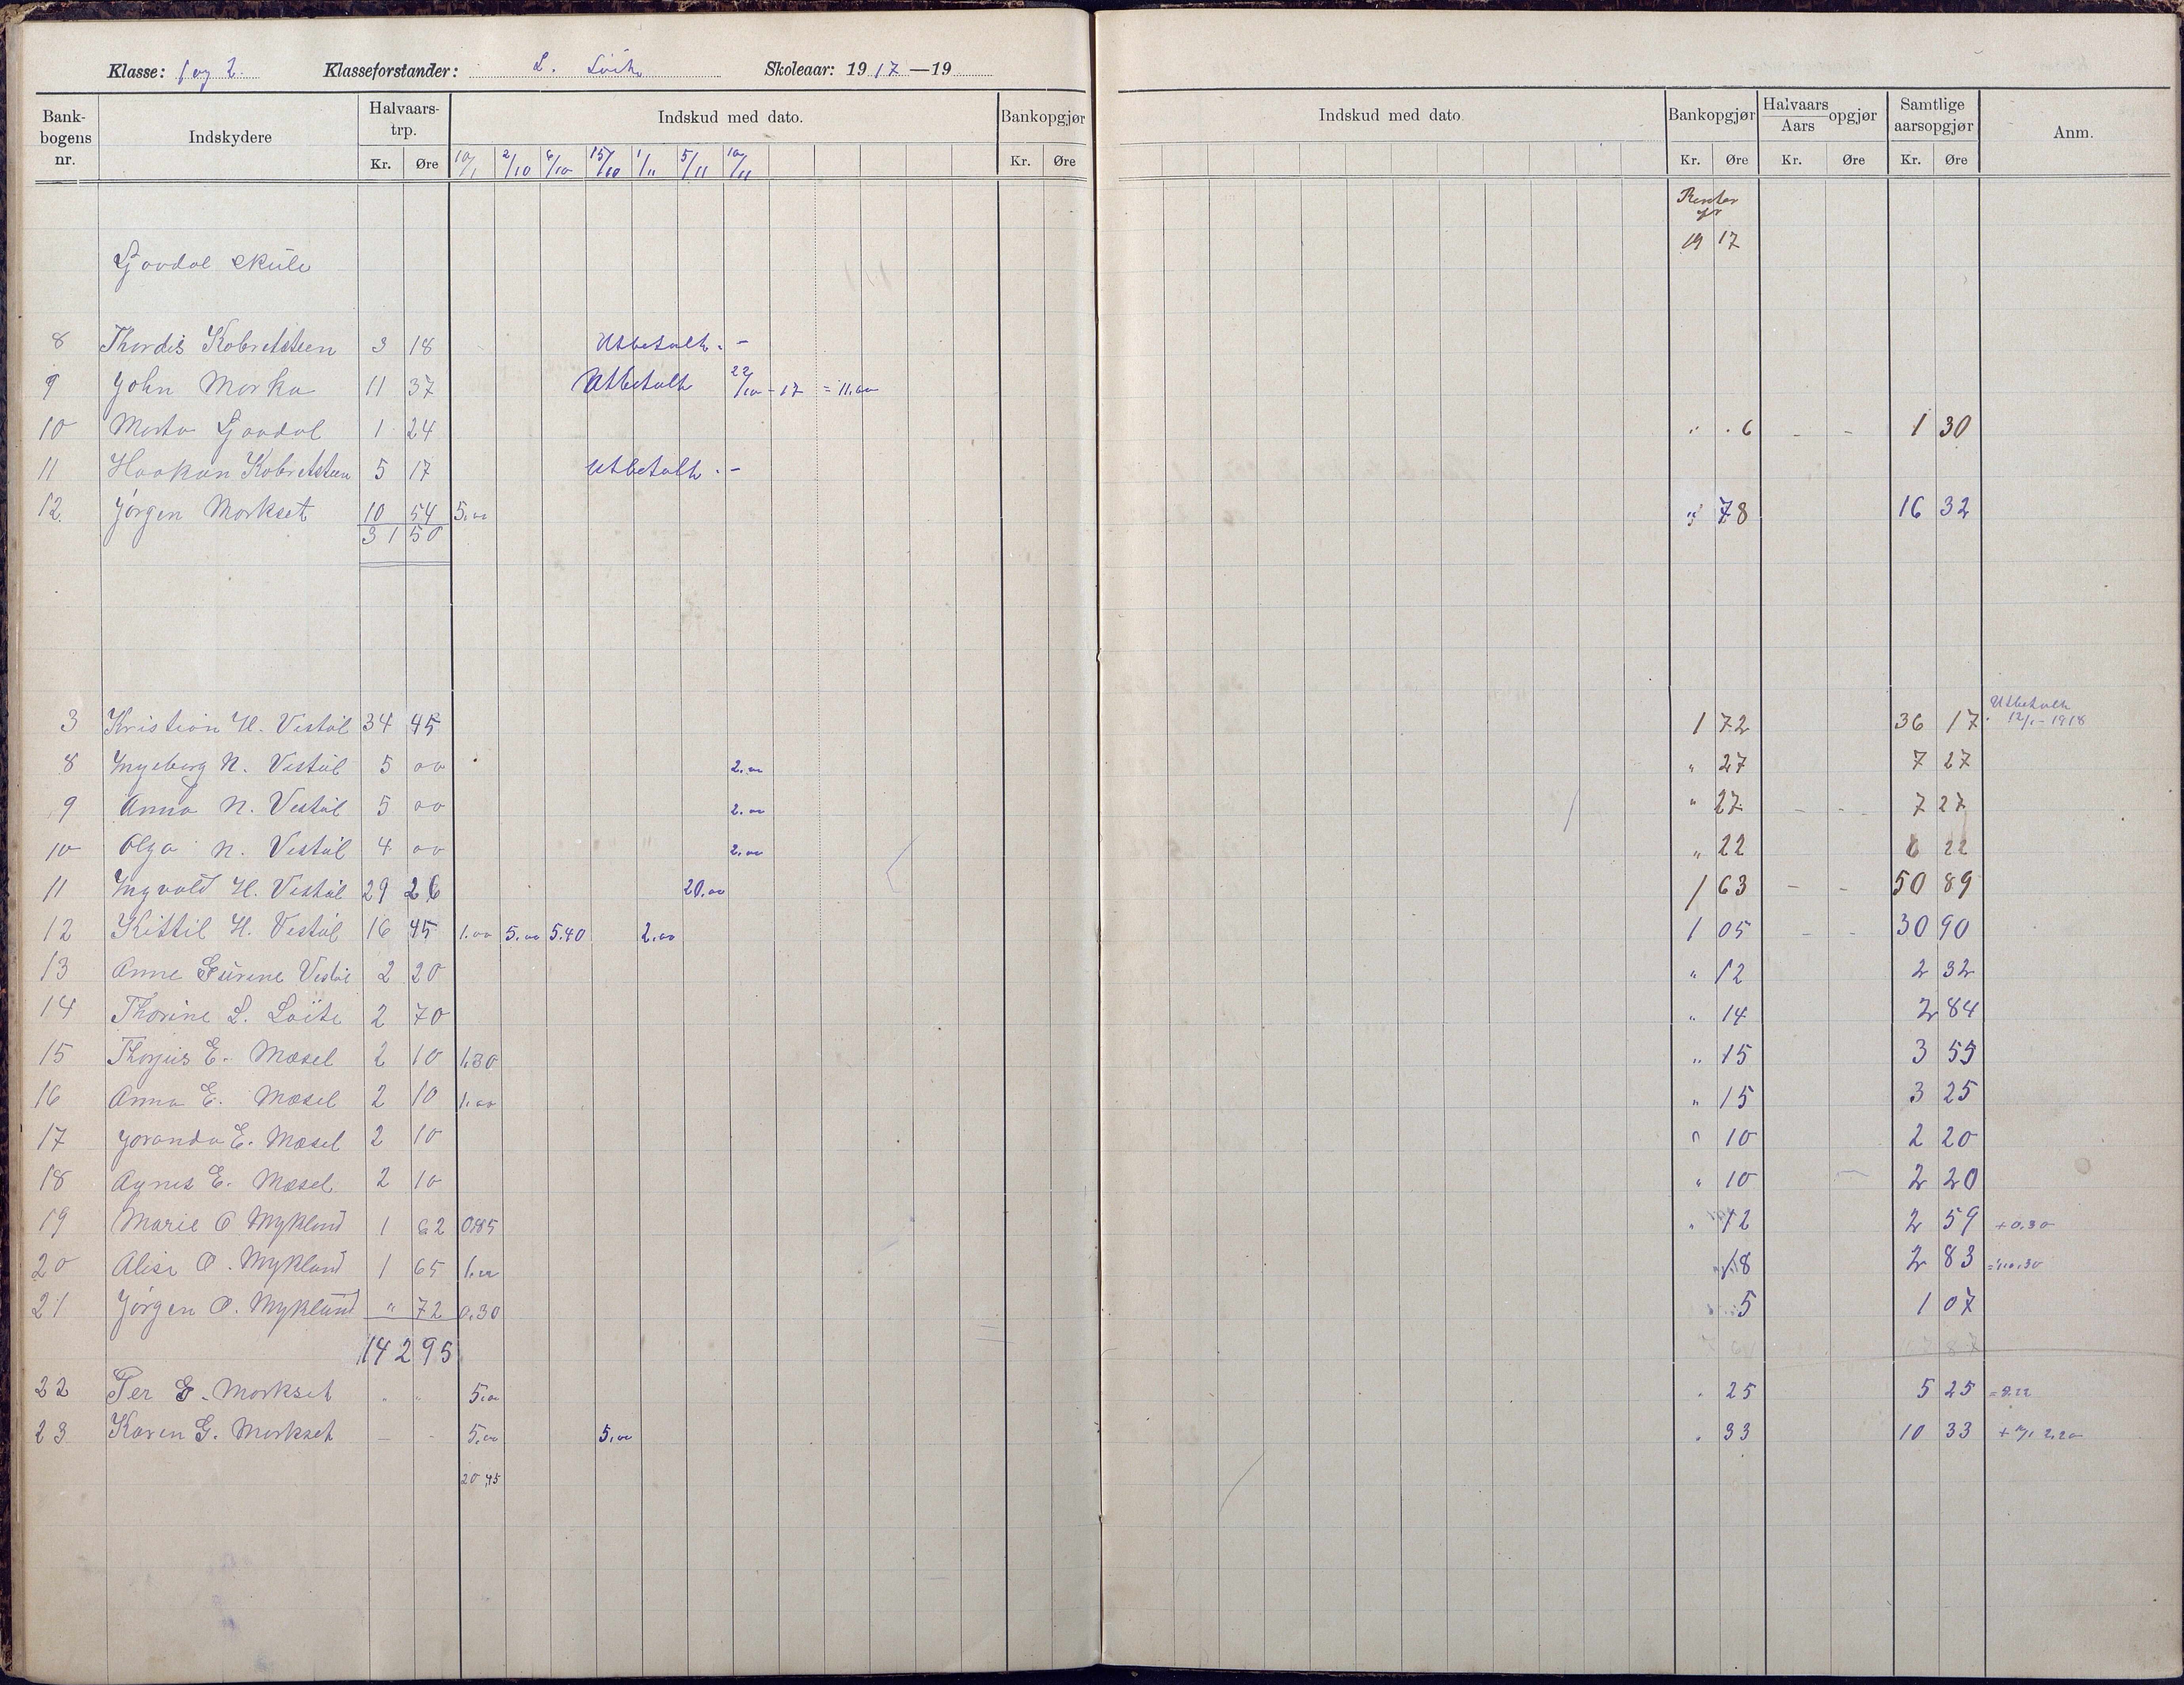 Klasse: 1 og 2. Klasseforstander: L. Löite Skoleaar: 1917—19
Bankbogens nr. Indskydere Halvaars-trp. Indskud med dato. Bankopgjør Indskud med dato. Bankopgjør Halvaars Aars opgjør Samtlige aarsopgjør Anm.
Kr. Øre 10/1 2/10 6/10 15/10 1/11 5/11 10/11 Kr. Øre Kr. Øre Kr. Øre Kr. Øre
Renter
for
19 17
skule
8 Thordis 3 18 Utbetalt. –
9 John Morka 11 37 Utbetalt 22/10 - 17 = 11.00
10 Marta 1 24 " . 6 - - 1 30
11 Haakon 5 17 Utbetalt . –
12. Jörgen Morkset 10 54 5.00 " 78 16 32
31 50
3 Kristian H. Vestöl 34 45 1 72 36 17 Utbetalt
12/1 - 1918
8 Ingeborg N. Vestöl 5 00 2.00 " 27 7 27
9 Anna N. Vestöl 5 00 2.00 " 27 - - 7 27
10 Olga N. Vestöl 4 00 2.00 " 22 6 22
11 Ingvald H. Vestöl 29 26 20.00 1 63 - - 50 89
12 Kittil H. Vestöl 16 45 1.00 5.00 5.40 2.00 1 05 - - 30 90
13 Anne Gurine Vestöl 2 20 " 12 2 32
14 Thorine L. Löite 2 70 " 14 2 84
15 E. Mæsel 2 10 1.30 " 15 3 55
16 Anna E. Mæsel 2 10 1.00 " 15 3 25
17 Joranda E. Mæsel 2 10 " 10 2 20
18 Agnes E. Mæsel 2 10 " 10 2 20
19 Marie O Mykland 1 62 0.85 " 12 2 59 +0.30
20 Alise O. Mykland 1 65 1.00 18 2 83
21 Jörgen O. Mykland " 72 0.30 5 1 07
142 95
22 Per G. Morkset " " 5.00 . 25 5 25
23 Karen G. Morkset - - 5.00 5.00 . 33 10 33
20,45